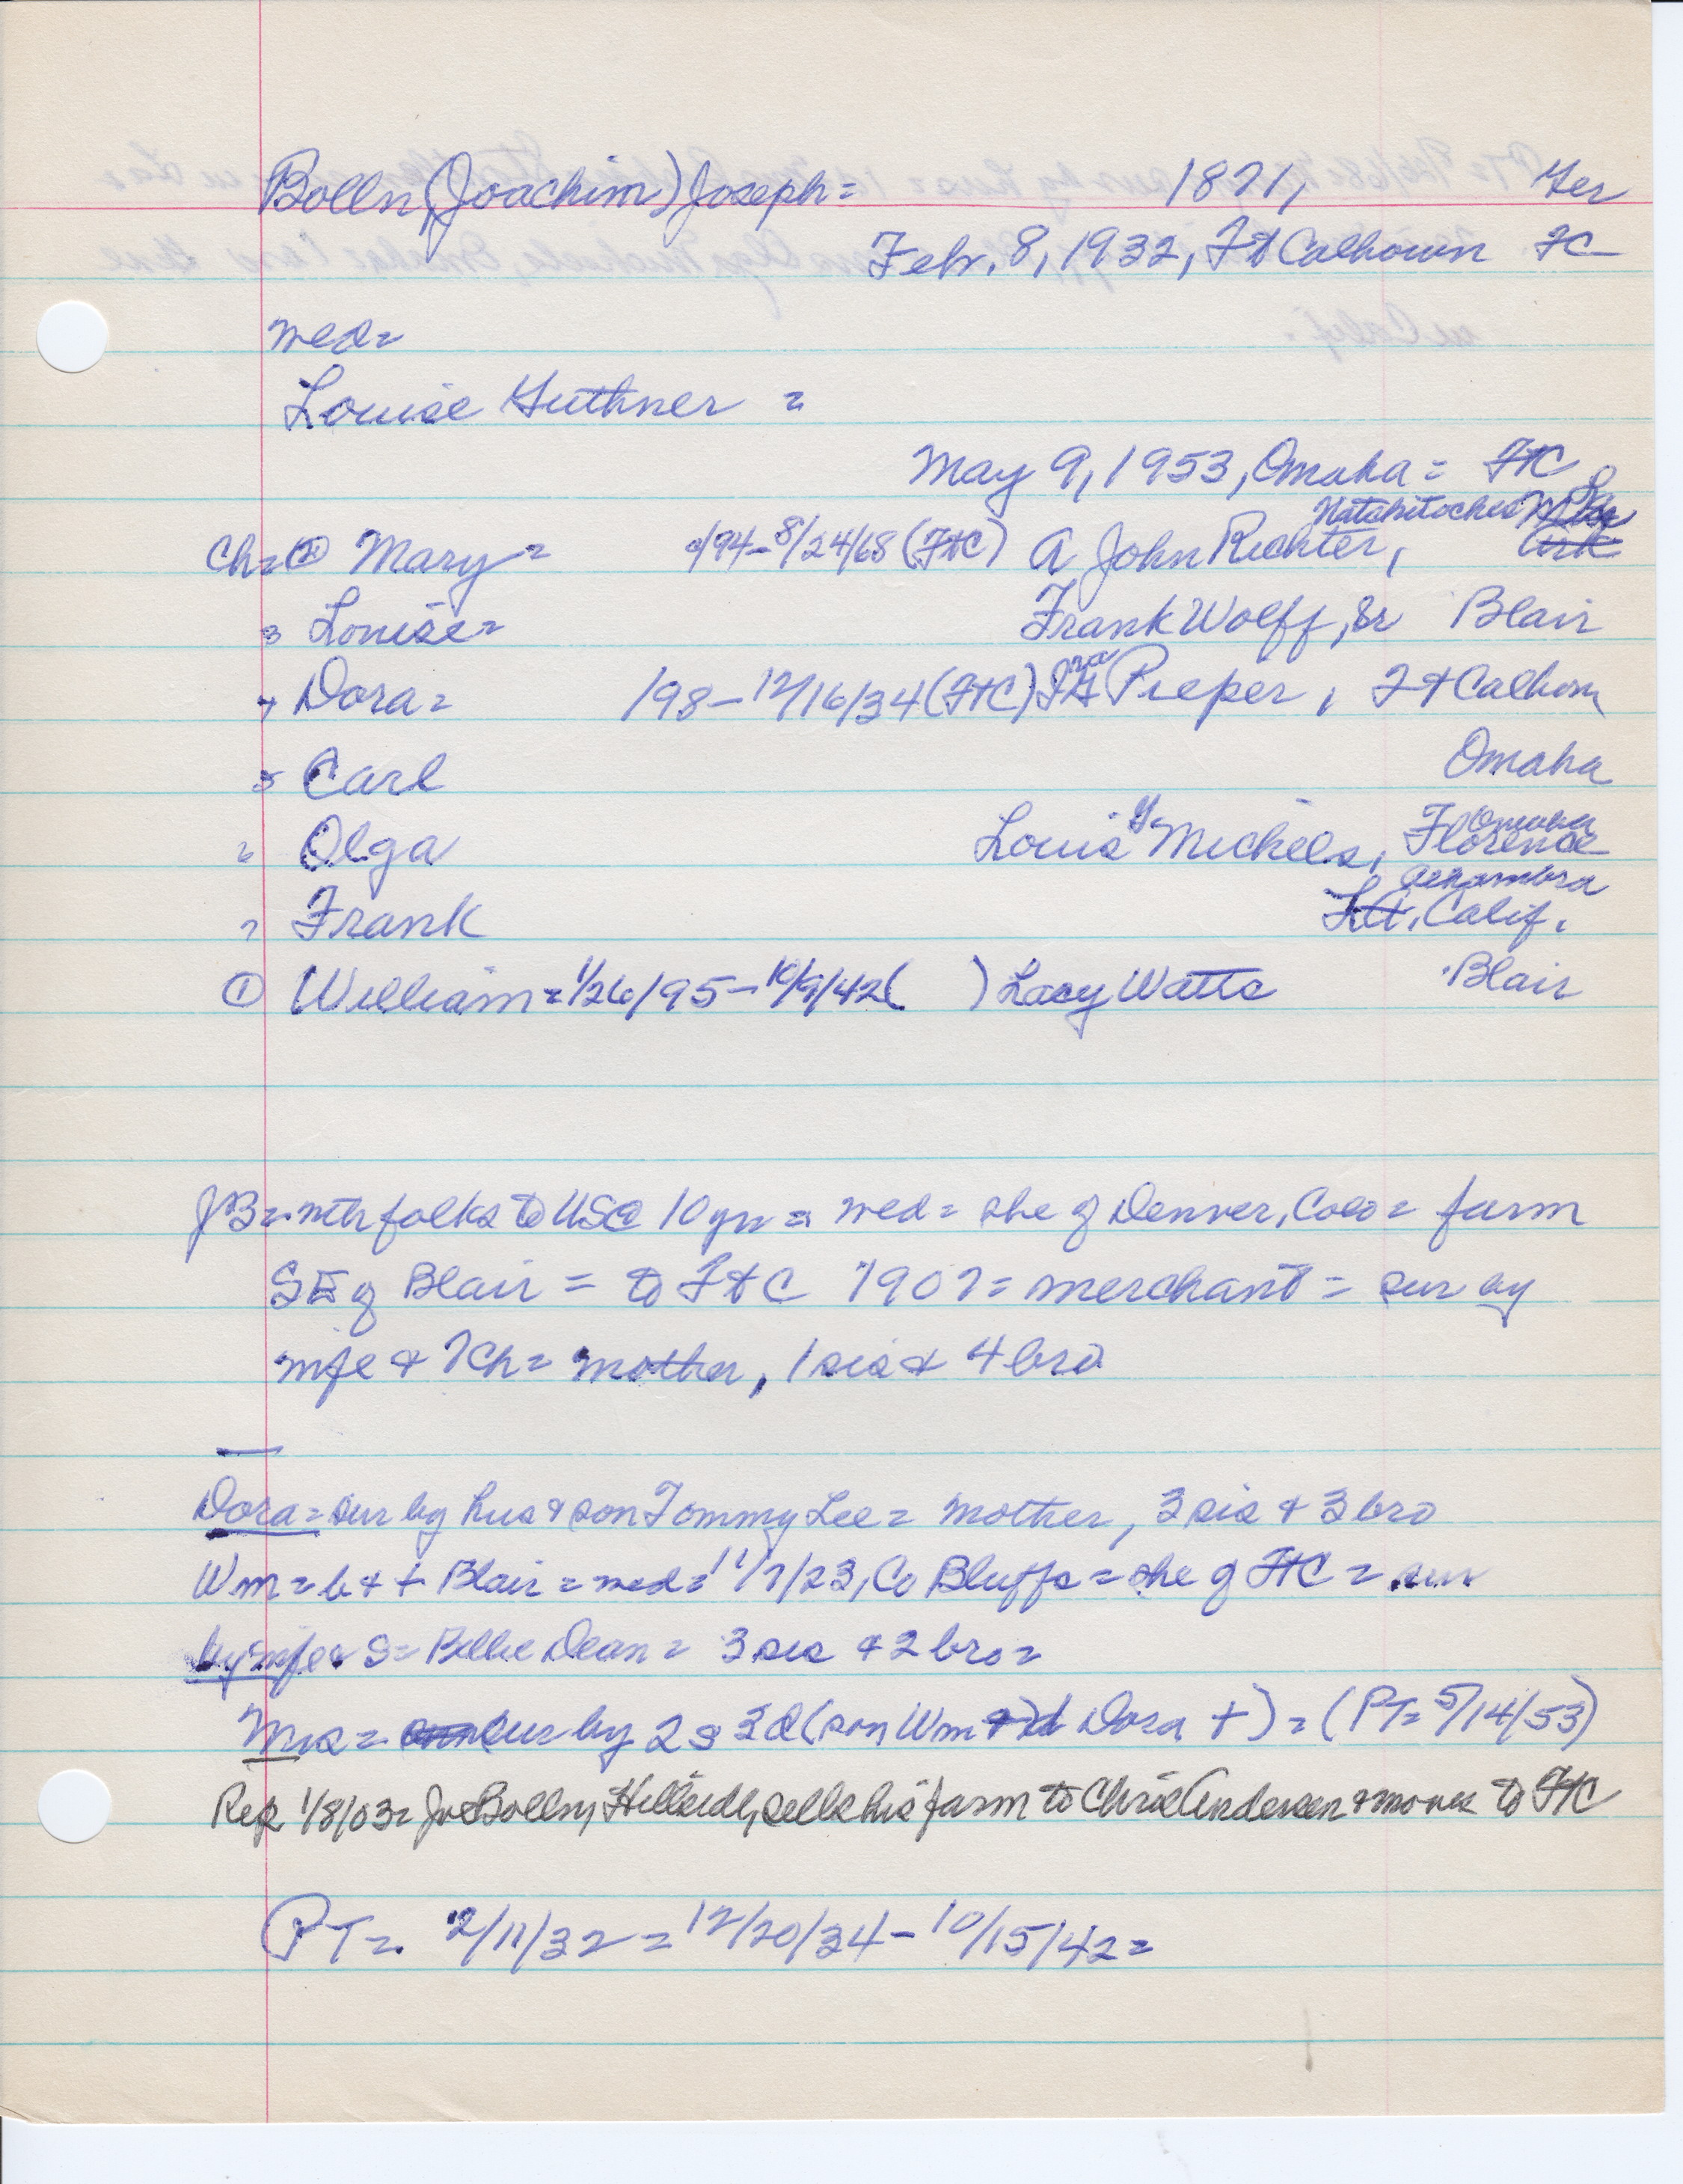 Bolln, (Joachim) Joseph = 1871, Ger
Feb. 8, 1932, Ft Calhoun FC
wed=
Louise Guthner =
May 9, 1953, Omaha = FtC
Natchitoches La
Ch= ② Mary = /94-8/24/68 (FtC) A John Richter, Ark
3 Louise = Frank Wolff, Sr Blair
4 Dora = /98-12/16/34 (FtC) Ira Pieper, Ft Calhoun
5 Carl Omaha
Omaha
6 Olga Louis Y Michels, Florence
Alhambra
7 Frank LA, Calif.
① William = 1/26/95-10/9/42 ( ) Lacy Watts Blair
JB = with folks to USA 10 yrs = wed = she of Denver, Colo = farm
SE of Blair = to FtC 1907 = merchant = sur by
wife & 7 Ch = mother, 1 sis & 4 bro
Dora = sur by hus & son Tommy Lee = mother, 3 sis & 3 bro
Wm = b & + Blair = wed = 11/7/23, Co Bluffs = she of FtC = sur
by wife & S = Billie Dean = 3 sis & 2 bro =
Mrs = sur by 2 s 3 d (son Wm & d Dora +) = (PT = 5/14/53)
Rep 1/8/03 = Jos Bolln, Hillsidle, sells his farm to Chris Andersen & moves to FtC
PT = 2/11/32 = 12/20/34 - 10/15/42 =